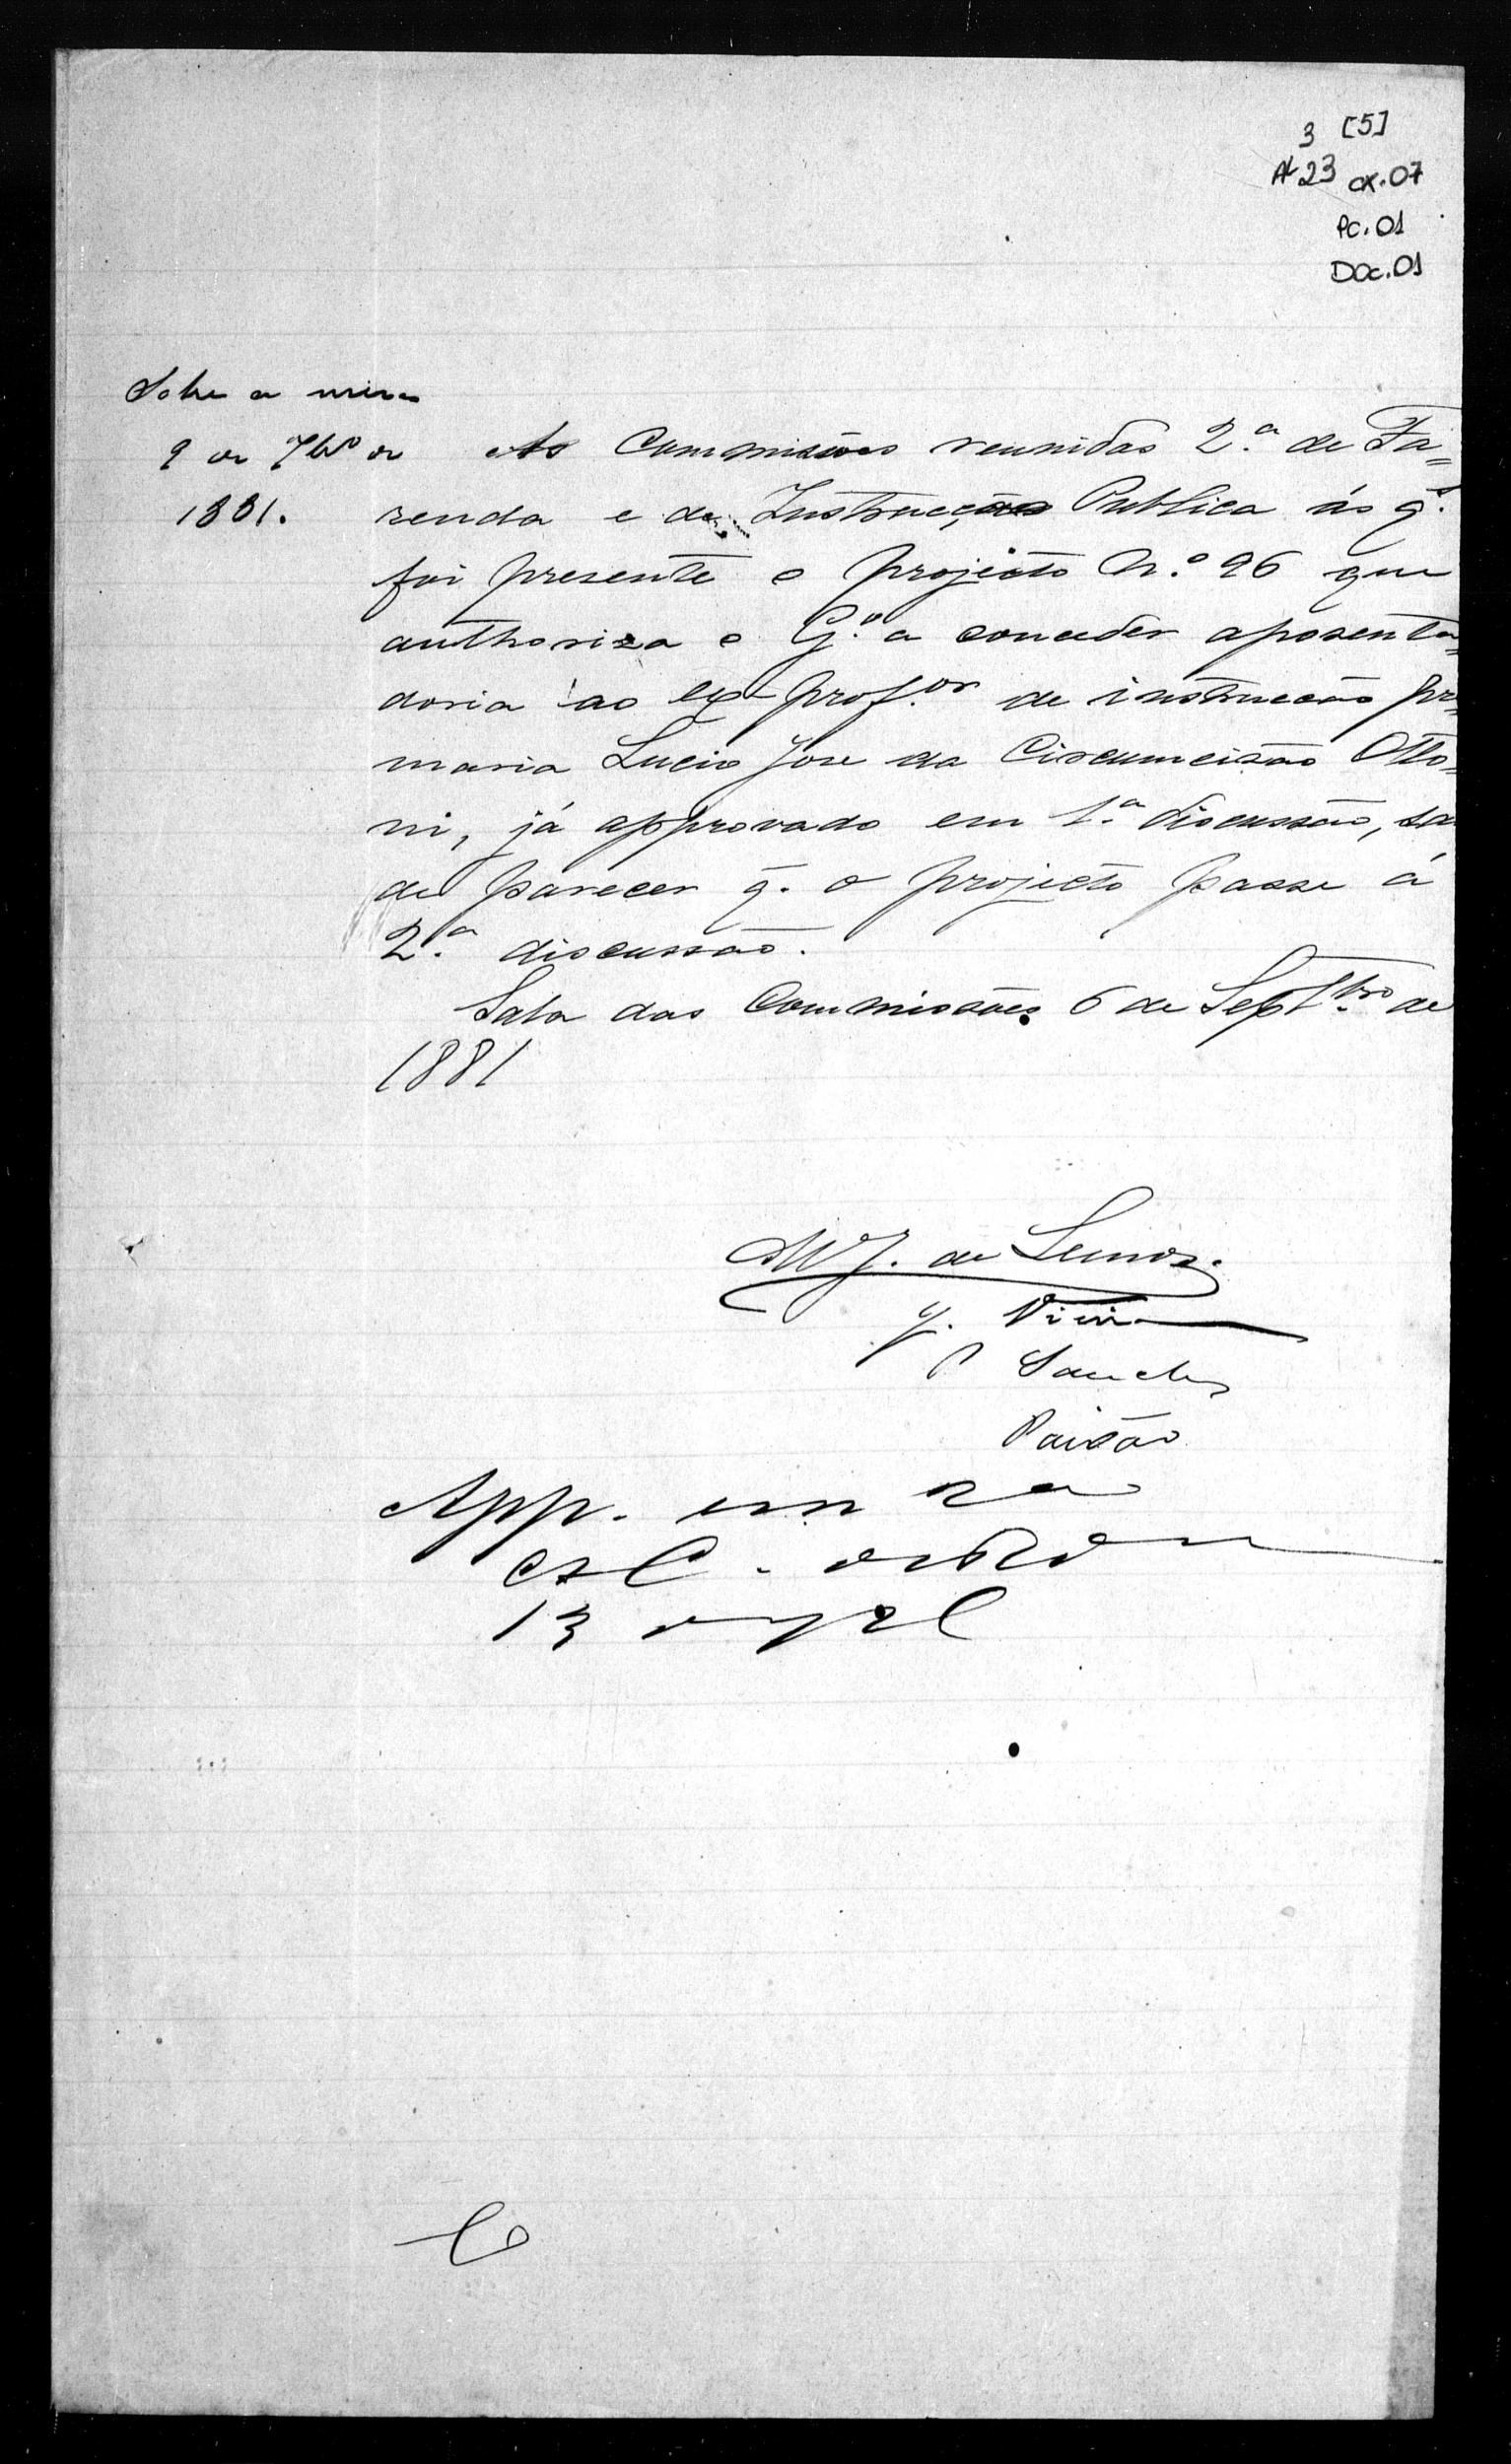 3 [5]
AL 23 cx.07
PC.01
Doc.01
Sobre a mesa
9 de 7bro de
1881.
As Commissões reunidas 2.ª de Fa=
zenda e de Instrucção Publica ás q.
foi presente o projecto N.º 96 que
authoriza o G.º a conceder aposenta=
doria ao ex-prof.or de instrucção pri=
maria Lucio José da Circumcisão Otto=
ni, já approvado em 1.ª discussão, sa
de parecer q. o projecto passe á
2.ª discussão.
Sala das Commissões 6 de Septbro de
1881
M J. de Lemos.
J. Vieira
P Sanches
Paixão
App. em 2a
13